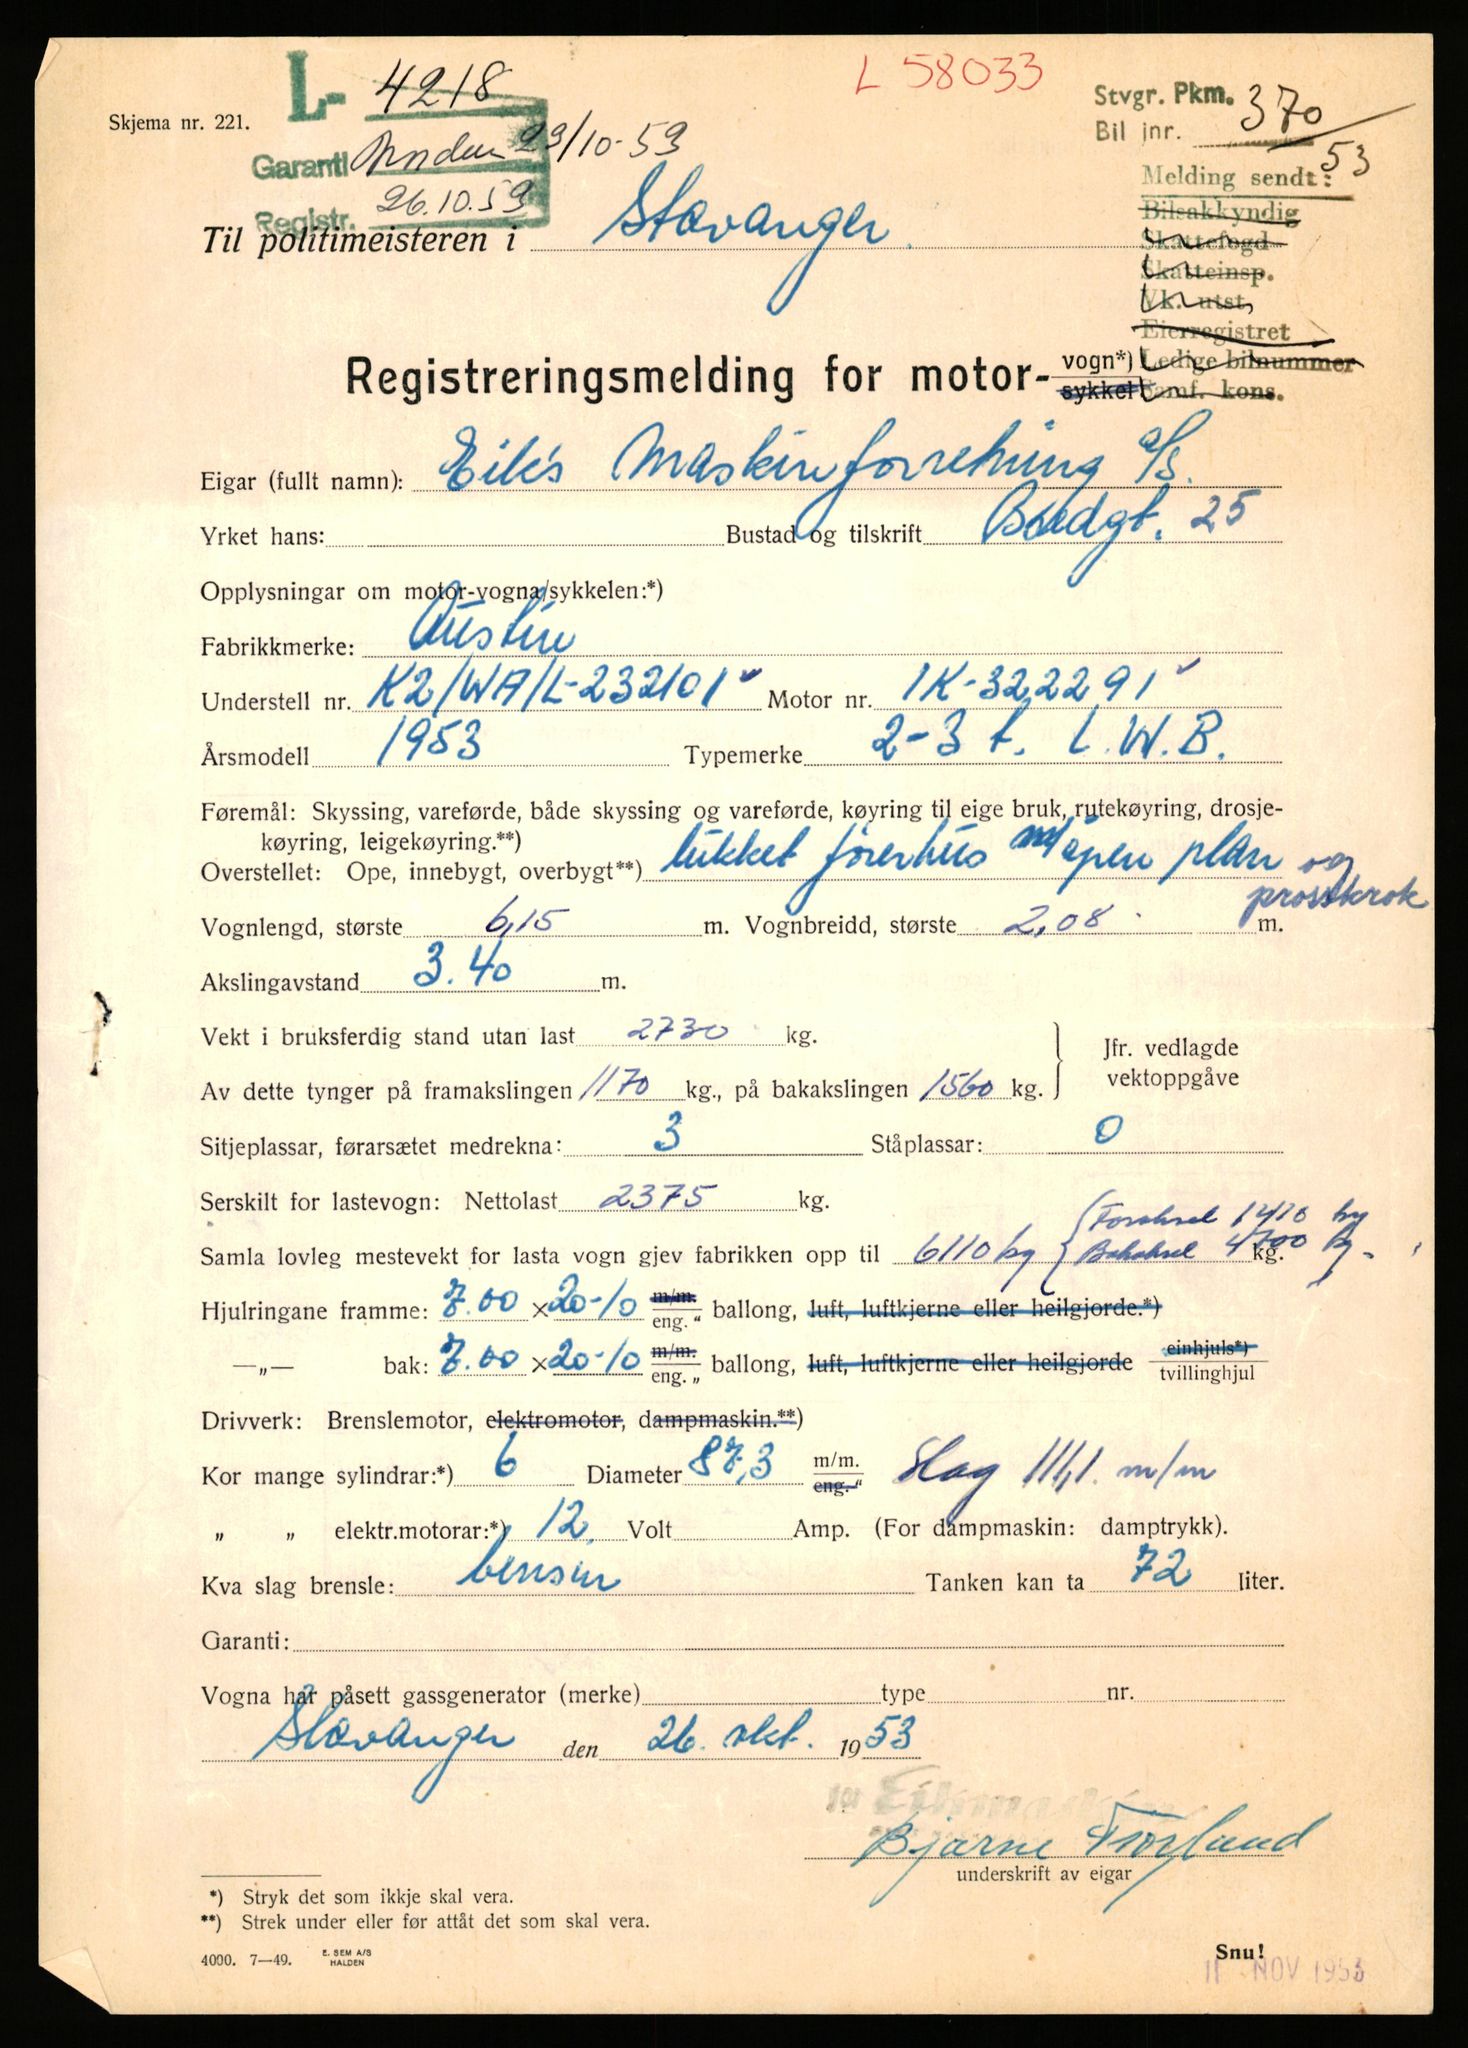 L- 4218
L 58033
Stvgr. Pkm. 370
Bil jnr. 53
Skjema nr. 221.
Garanti Anden 23/10-53
Registr. 26.10.53
Melding sendt:
Bilsakkyndig
Skattefogd
Skatteinsp.
Vk. utst,
Eierregistret
Ledige bilnummer
Samf. kons.
Til politimeisteren i Stavanger.
Registreringsmelding for motor- vogn*)
sykkel
Eigar (fullt namn): Eik's Maskinforretning a/s.
Yrket hans: Bustad og tilskrift Bredgt. 25
Opplysningar om motor-vogna/sykkelen:*)
Fabrikkmerke: Austin
Understell nr. K2/WA/L-232101 Motor nr. 1K-322291
Årsmodell 1953 Typemerke 2-3 t. L.W.B.
Føremål: Skyssing, vareførde, både skyssing og vareførde, køyring til eige bruk, rutekøyring, drosje-
køyring, leigekøyring.**)
Overstellet: Ope, innebygt, overbygt**) lukket førerhus m/åpen plan og
Vognlengd, største 6,15 m. Vognbreidd, største 2,08 m.
Akslingavstand 3.40 m.
Vekt i bruksferdig stand utan last 2730 kg.
Av dette tynger på framakslingen 1170 kg., på bakakslingen 1560 kg.
Jfr. vedlagde
vektoppgåve
Sitjeplassar, førarsætet medrekna: 3 Ståplassar: 0
Serskilt for lastevogn: Nettolast 2375 kg.
Samla lovleg mestevekt for lasta vogn gjev fabrikken opp til 6110 kg { Foraksel 1410 kg
Bakaksel 4700 kg. kg.
Hjulringane framme: 7.00 × 20-10 m/m. eng. " ballong, luft, luftkjerne eller heilgjorde.*)
—„— bak: 7.00 × 20-10 m/m. eng. „ ballong, luft, luftkjerne eller heilgjorde einhjuls*) tvillinghjul
Drivverk: Brenslemotor, elektromotor, dampmaskin.**)
Kor mange sylindrar:*) 6 Diameter 87,3 m/m. eng. " Slag 111,1. m/m
„ „ elektr.motorar:*) 12. Volt Amp. (For dampmaskin: damptrykk).
Kva slag brensle: bensin Tanken kan ta 72 liter.
Garanti:
Vogna har påsett gassgenerator (merke) type nr.
Stavanger den 26. okt. 1953
Bjarne Frøyland
underskrift av eigar
*) Stryk det som ikkje skal vera.
**) Strek under eller før attåt det som skal vera.
4000. 7—49. E. SEM A/S
HALDEN
Snu!
11 NOV 1953